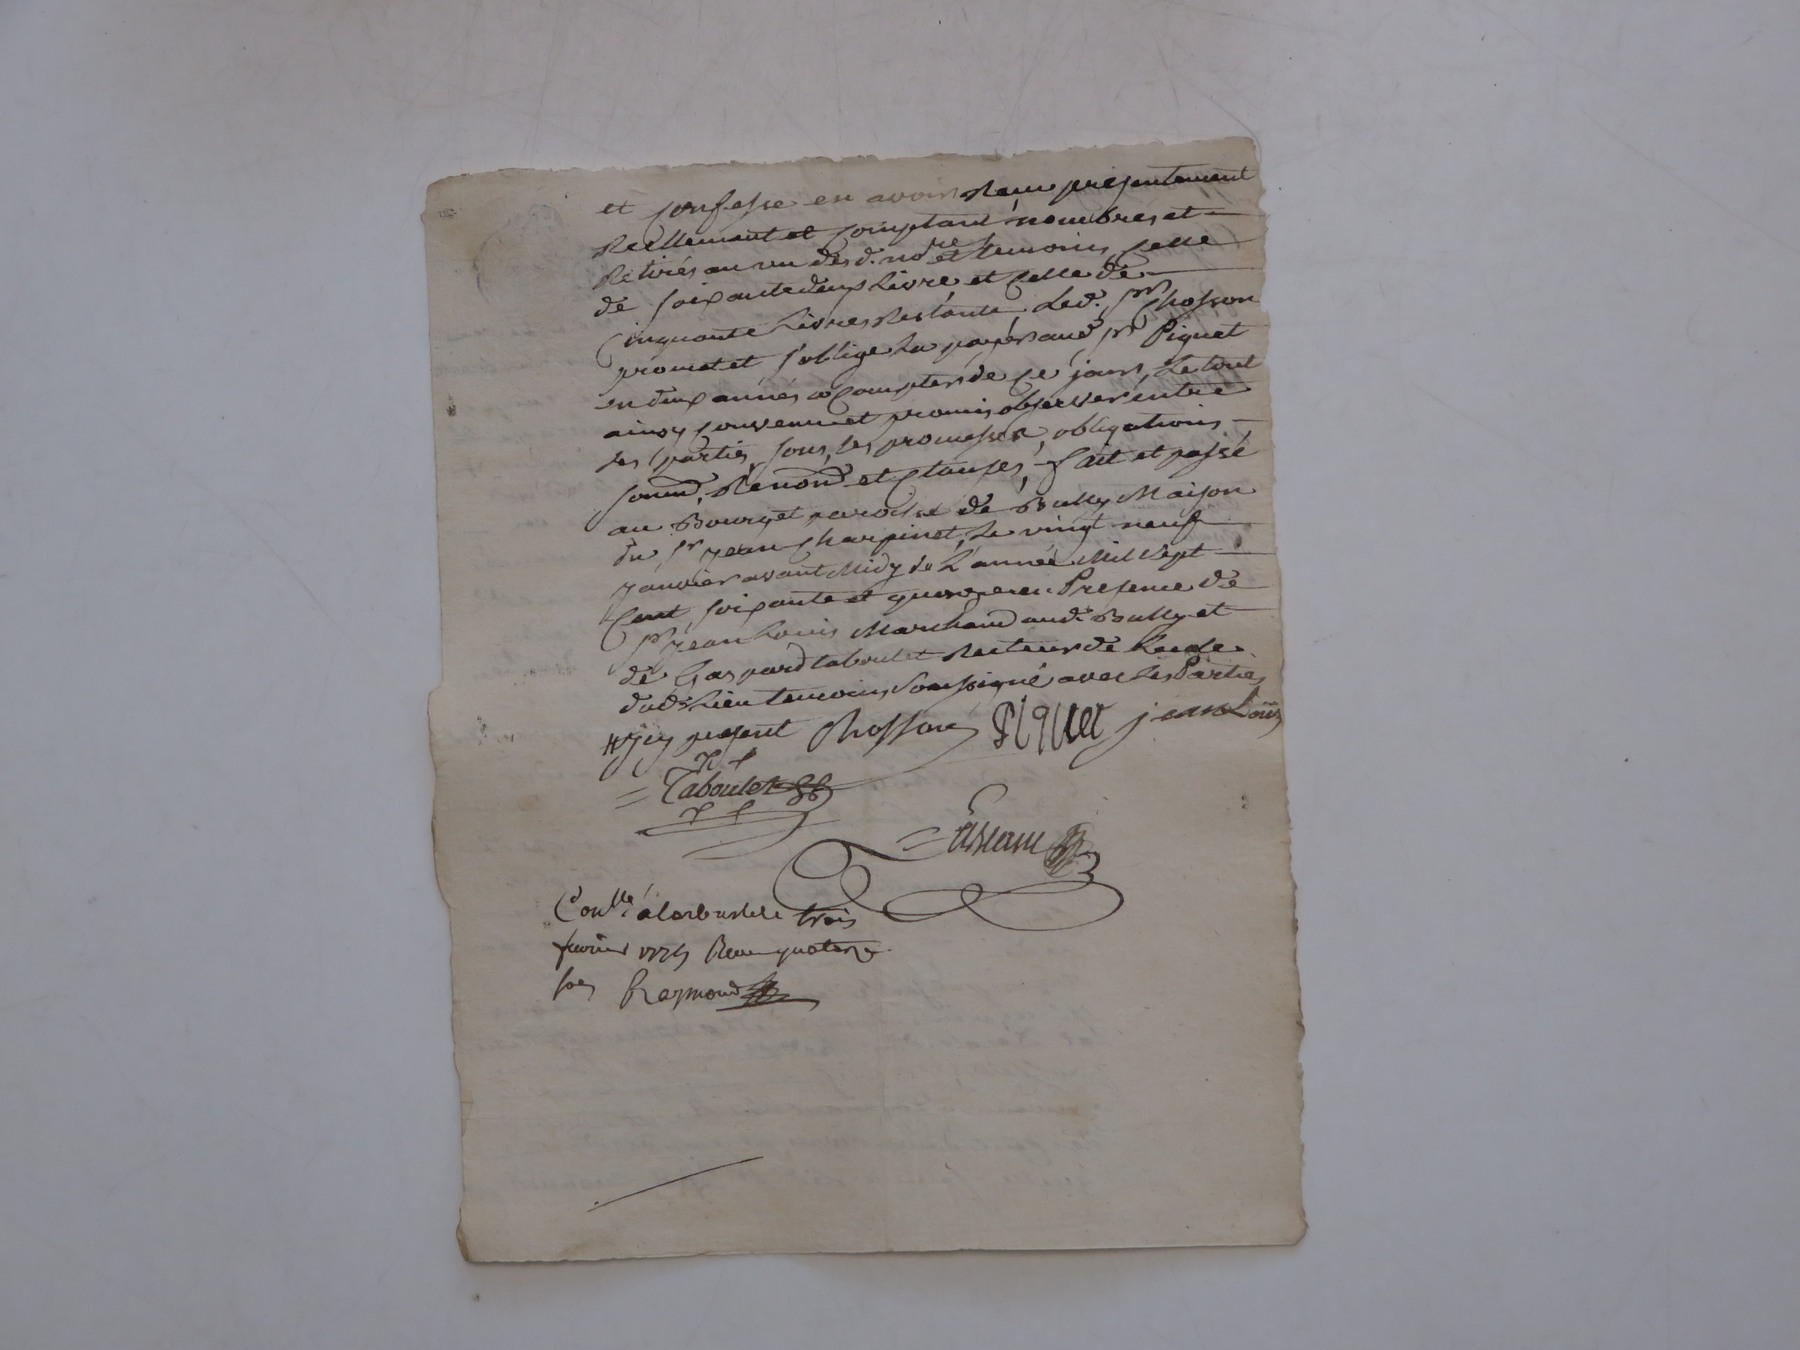 et confesse en avoir Reçu presentement
Reellement et comptant nombres et
Retirés au vu desd. no.re et temoins, celle
de soixante deux Livre et celle de
cinquante Livres Restante, Led. sr. Chosson
promet et s'oblige La payer aud. sr. Piquet
en deux années a Compter de ce jour, Le tout
ainsy convenu et promis observer entre
les parties, sous les promesses, obligations
soumd. Renond. et clauses, fait et passé
au Bourg et paroisse de Bully Maison
du sr. jean Charpinet, Le vingt neuf
janvier avant Midy de L'année Mil sept
Cent soixante et quinze en Presence de
sr. jean Louis Marchand aud. Bully et
de Gaspard taboulet Recteur de Lecole
dud. Lieu temoins Soussigné avec Les Parties
icy present Chosson Piquet jean Louis
Taboulet

Conllé a larbresle le trois
fevrier 1775 Recu quatorze
sols Reymond